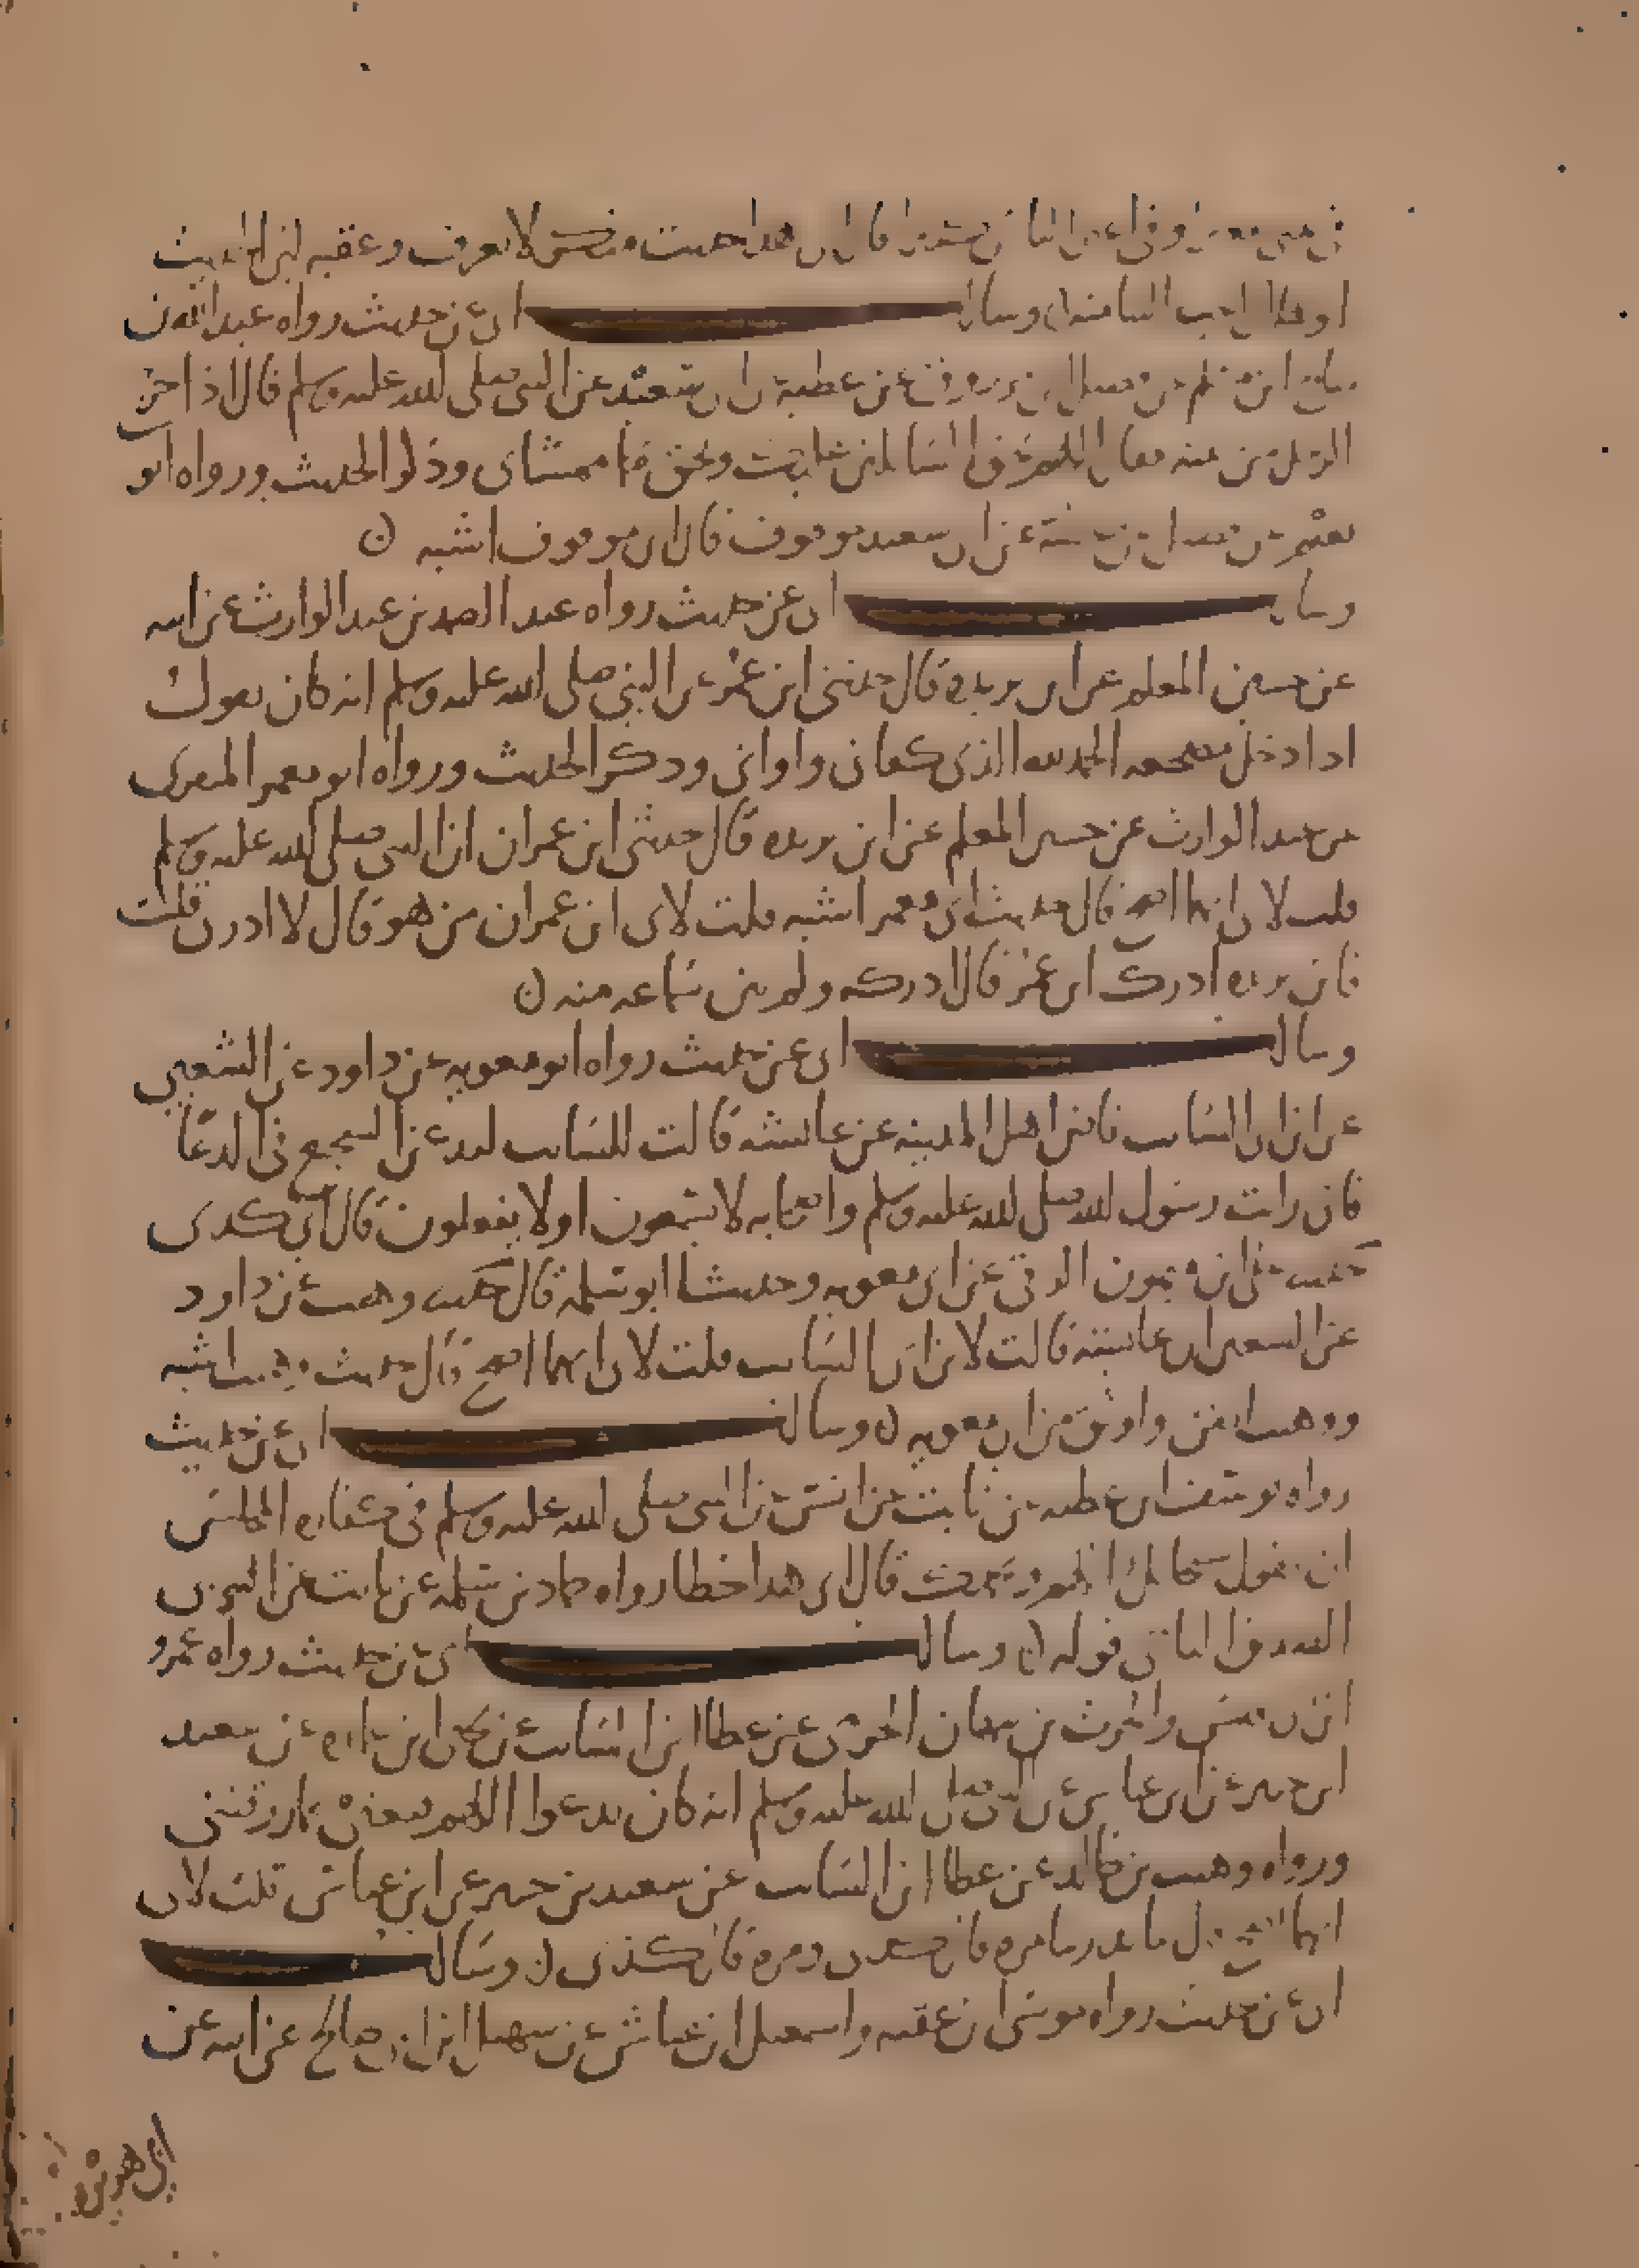 قال ابي هذا حديث منكر لا يعرف وعقبه لين الحديث
وسالت ابي عن حديث رواه عبد الله بن
عن فضيل بن مرزوق عن عطية عن ابي سعيد عن النبي صلى الله عليه وسلم قال اذا خرج
الرجل من بيته فقال اللهم بحق السائلين عليك وبحق ممشاي وذكر الحديث ورواه ابو
نعيم عن فضيل عن عطية عن ابي سعيد موقوف قال ابي موقوف اشبه ن
وسالت ابي عن حديث رواه عبد الصمد بن عبد الوارث عن ابيه
عن حسين المعلم عن ابن بريده قال حدثني ابن عمر عن النبي صلى الله عليه وسلم انه كان يقول
اذا دخل مضجعه الحمد لله الذي كفاني واواني وذكر الحديث ورواه ابو معمر المنقري
عن عبد الوارث عن حسين المعلم عن ابن بريده قال حدثني ابن عمران ان النبي صلى الله عليه وسلم
قلت لابي ايهما اصح قال حديث ابي معمر اشبه قلت لابي ابن عمران من هو قال لا ادري قلت
فابن بريده ادرك ابن عمر قال ادركه ولم يبن سماعه منه ن
وسالت ابي عن حديث رواه ابو معويه عن داود عن الشعبي
عن ابن ابي السايب قاص اهل المدينه عن عايشه قالت للسايب ليد عن السجع في الدعا
فاني رايت رسول الله صلى الله عليه وسلم واصحابه لا يسجعون او لا يفعلون قال ابي كذى
حدثنى ابن ميمون الرقي عن ابي معويه وحدثنا ابو سلمه قال حدثنا وهيب عن داود
عن الشعبي ان عايشه قالت لابن ابي السايب قلت لابي ايهما اصح قال حديث وهيب اشبه
ووهيب اتقن واوثق من ابي معويه ن وسالت ابي عن حديث
رواه يوسف ابن عطيه عن ثابت عن انس عن النبي صلى الله عليه وسلم في كفاره المجلس
ان يقول سبحانك اللهم وبحمدك قال ابي هذا خطا رواه حماد بن سلمه عن ثابت عن ابي
الصديق الناجي قوله ن وسالت ابي عن حديث رواه عمرو
ابن ابي قيس والحرث بن نبهان الجرمي عن عطا ابن السايب عن يحيى ابن عماره عن سعيد
ابن جبير عن ابن عباس عن النبي صلى الله عليه وسلم انه كان يدعوا اللهم قنعني بما رزقتني
ورواه وهيب بن خالد عن عطا ابن السايب عن سعيد بن جبير عن ابن عباس قلت لابي
ايهما اصح قال ما يدرينا مره قال كذى ومره قال كذى ن وسالت
ابي عن حديث رواه موسى ابن عقبه واسمعيل ابن عياش عن سهيل ابن ابي صالح عن ابيه عن
ابي هريره